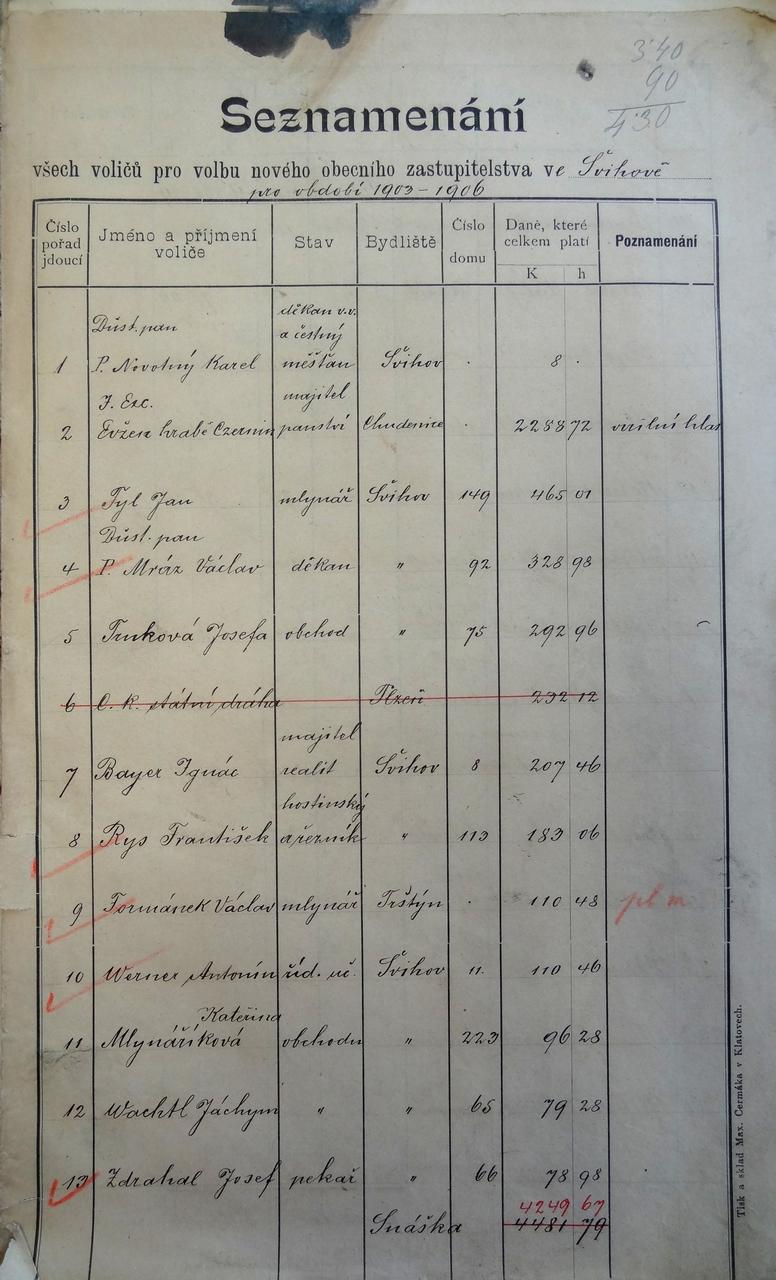 3·40
90
4·30
Seznamenání
všech voličů pro volbu nového obecního zastupitelstva ve Švihově
pro období 1903–1906
Číslo pořad jdoucí | Jméno a příjmení voliče | Stav | Bydliště | Číslo domu | Daně, které celkem platí K h | Poznamenání
Důst. pan děkan v.v. a čestný
1 P. Novotný Karel měšťan Švihov · 8 ·
J. Exc. majitel
2 Evžen hrabě Czernin panství Chudenice · 2288 72 virilní hlas
3 Tyl Jan mlynář Švihov 149 465 01
Důst. pan
4 P. Mráz Václav děkan " 92 328 98
5 Trnková Josefa obchod " 75 292 96
6 C. k. státní dráha Plzeň 232 12
majitel
7 Bayer Ignác realit Švihov 8 207 46
hostinský
8 Rys František a řezník " 113 183 06
9 Formánek Václav mlynář Trštýn · 110 48 pl m
10 Werner Antonín říd. uč. Švihov 11 110 46
Kateřina
11 Mlynáříková obchodn " 223 96 28
12 Wachtl Jáchym " " 65 79 28
13 Zdrahal Josef pekař " 66 78 98
4249 67
Snáška 4481 79
Tisk a sklad Max. Čermáka v Klatovech.